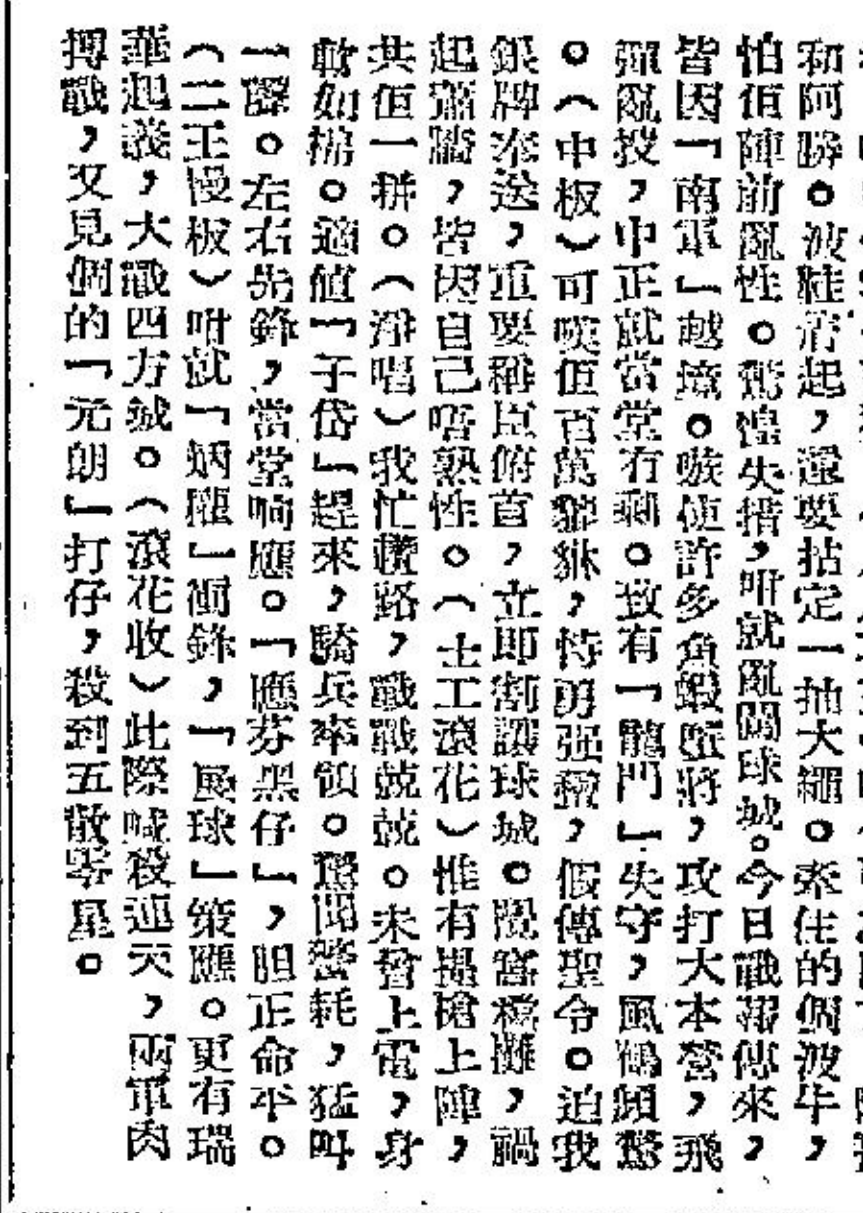 和阿勝。波鞋着起，還要拈定一抽大繩。索住的個波牛，
怕佢陣前亂性。驚惶失措，咁就亂闖球城。今日戰報傳來，
皆因「南軍」越境。嗾使許多魚蝦蟹將，攻打大本營，飛
彈亂投，中正就當堂冇剩。致有「龍門」失守，風鶴頻驚
。（中板）可嘆佢百萬貔貅，恃勇强橫，假傳聖令。迫我
銀牌奉送，重要稱臣俯首，立即割讓球城。禍
起蕭牆，皆因自己唔熟性。（士工滾花）惟有提槍上陣，
共佢一拼。（滑唱）我忙趕路，戰戰兢兢。未曾上電，身
軟如棉。適值「子岱」趕來，騎兵率領。驚聞噩耗，猛叫
一聲。左右先鋒，當堂响應。「應芬黑仔」，胆正命平。
（二王慢板）咁就「炳耀」衝鋒，「展球」策應。更有瑞
華起義，大戰四方城。（滾花收）此際喊殺連天，兩軍肉
搏戰，又見個的「元朗」打仔，殺到五散零星。